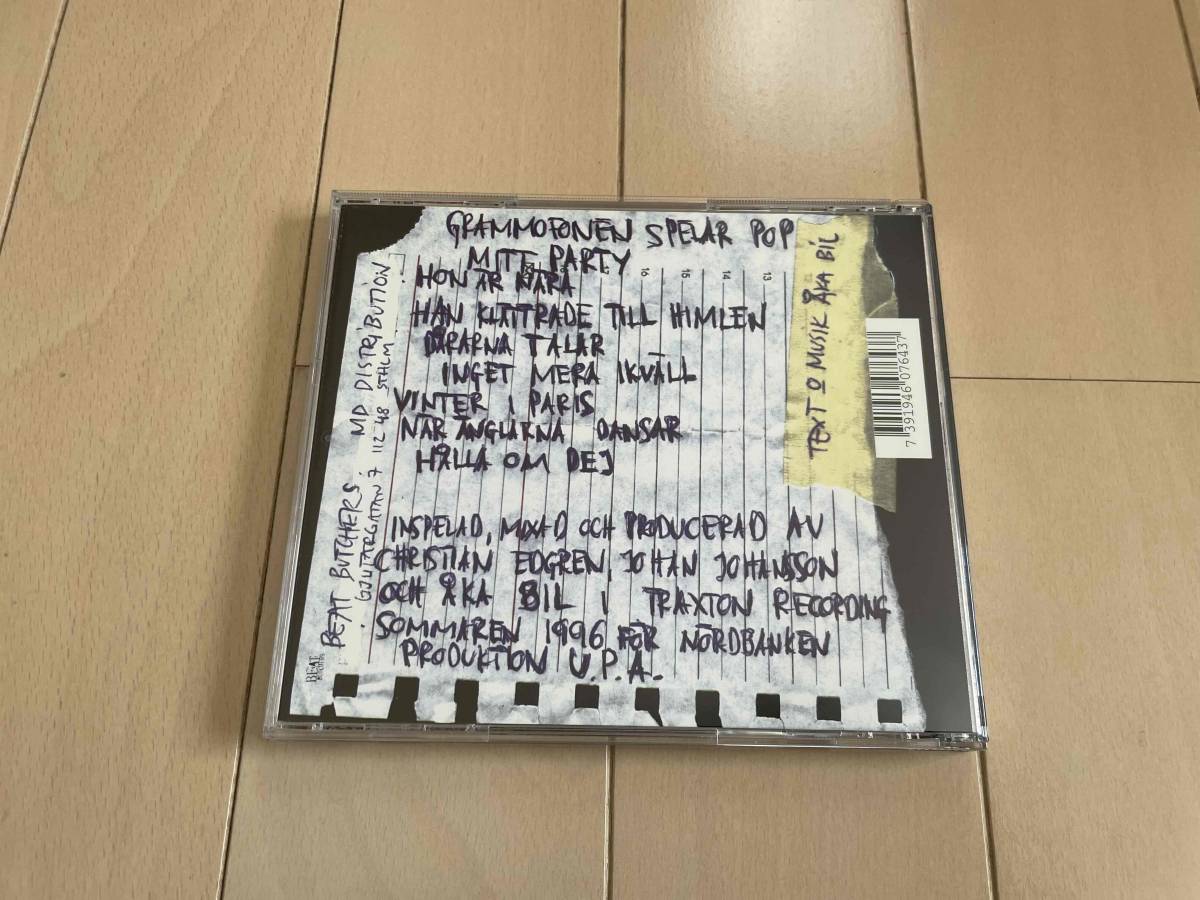 GRAMMOFONEN SPELAR POP
MITT PARTY
HON ÄR NÄRA
HAN KLÄTTRADE TILL HIMLEN
DÅRARNA TALAR
INGET MERA IKVÄLL
VINTER I PARIS
NÄR ÄNGLARNA DANSAR
HÅLLA OM DEJ
INSPELAD, MIXAD OCH PRODUCERAD AV
CHRISTIAN EDGREN, JOHAN JOHANSSON
OCH ÅKA BIL I TRAXTON RECORDING
SOMMAREN 1996 FÖR NORDBANKEN
PRODUKTION U.P.A.
BEAT BUTCHERS MD DISTRIBUTION
GJUTARGATAN 7 112 48 STHLM
TEXT O MUSIK ÅKA BIL
7 391946 076437
16 15 14 13
BEAT